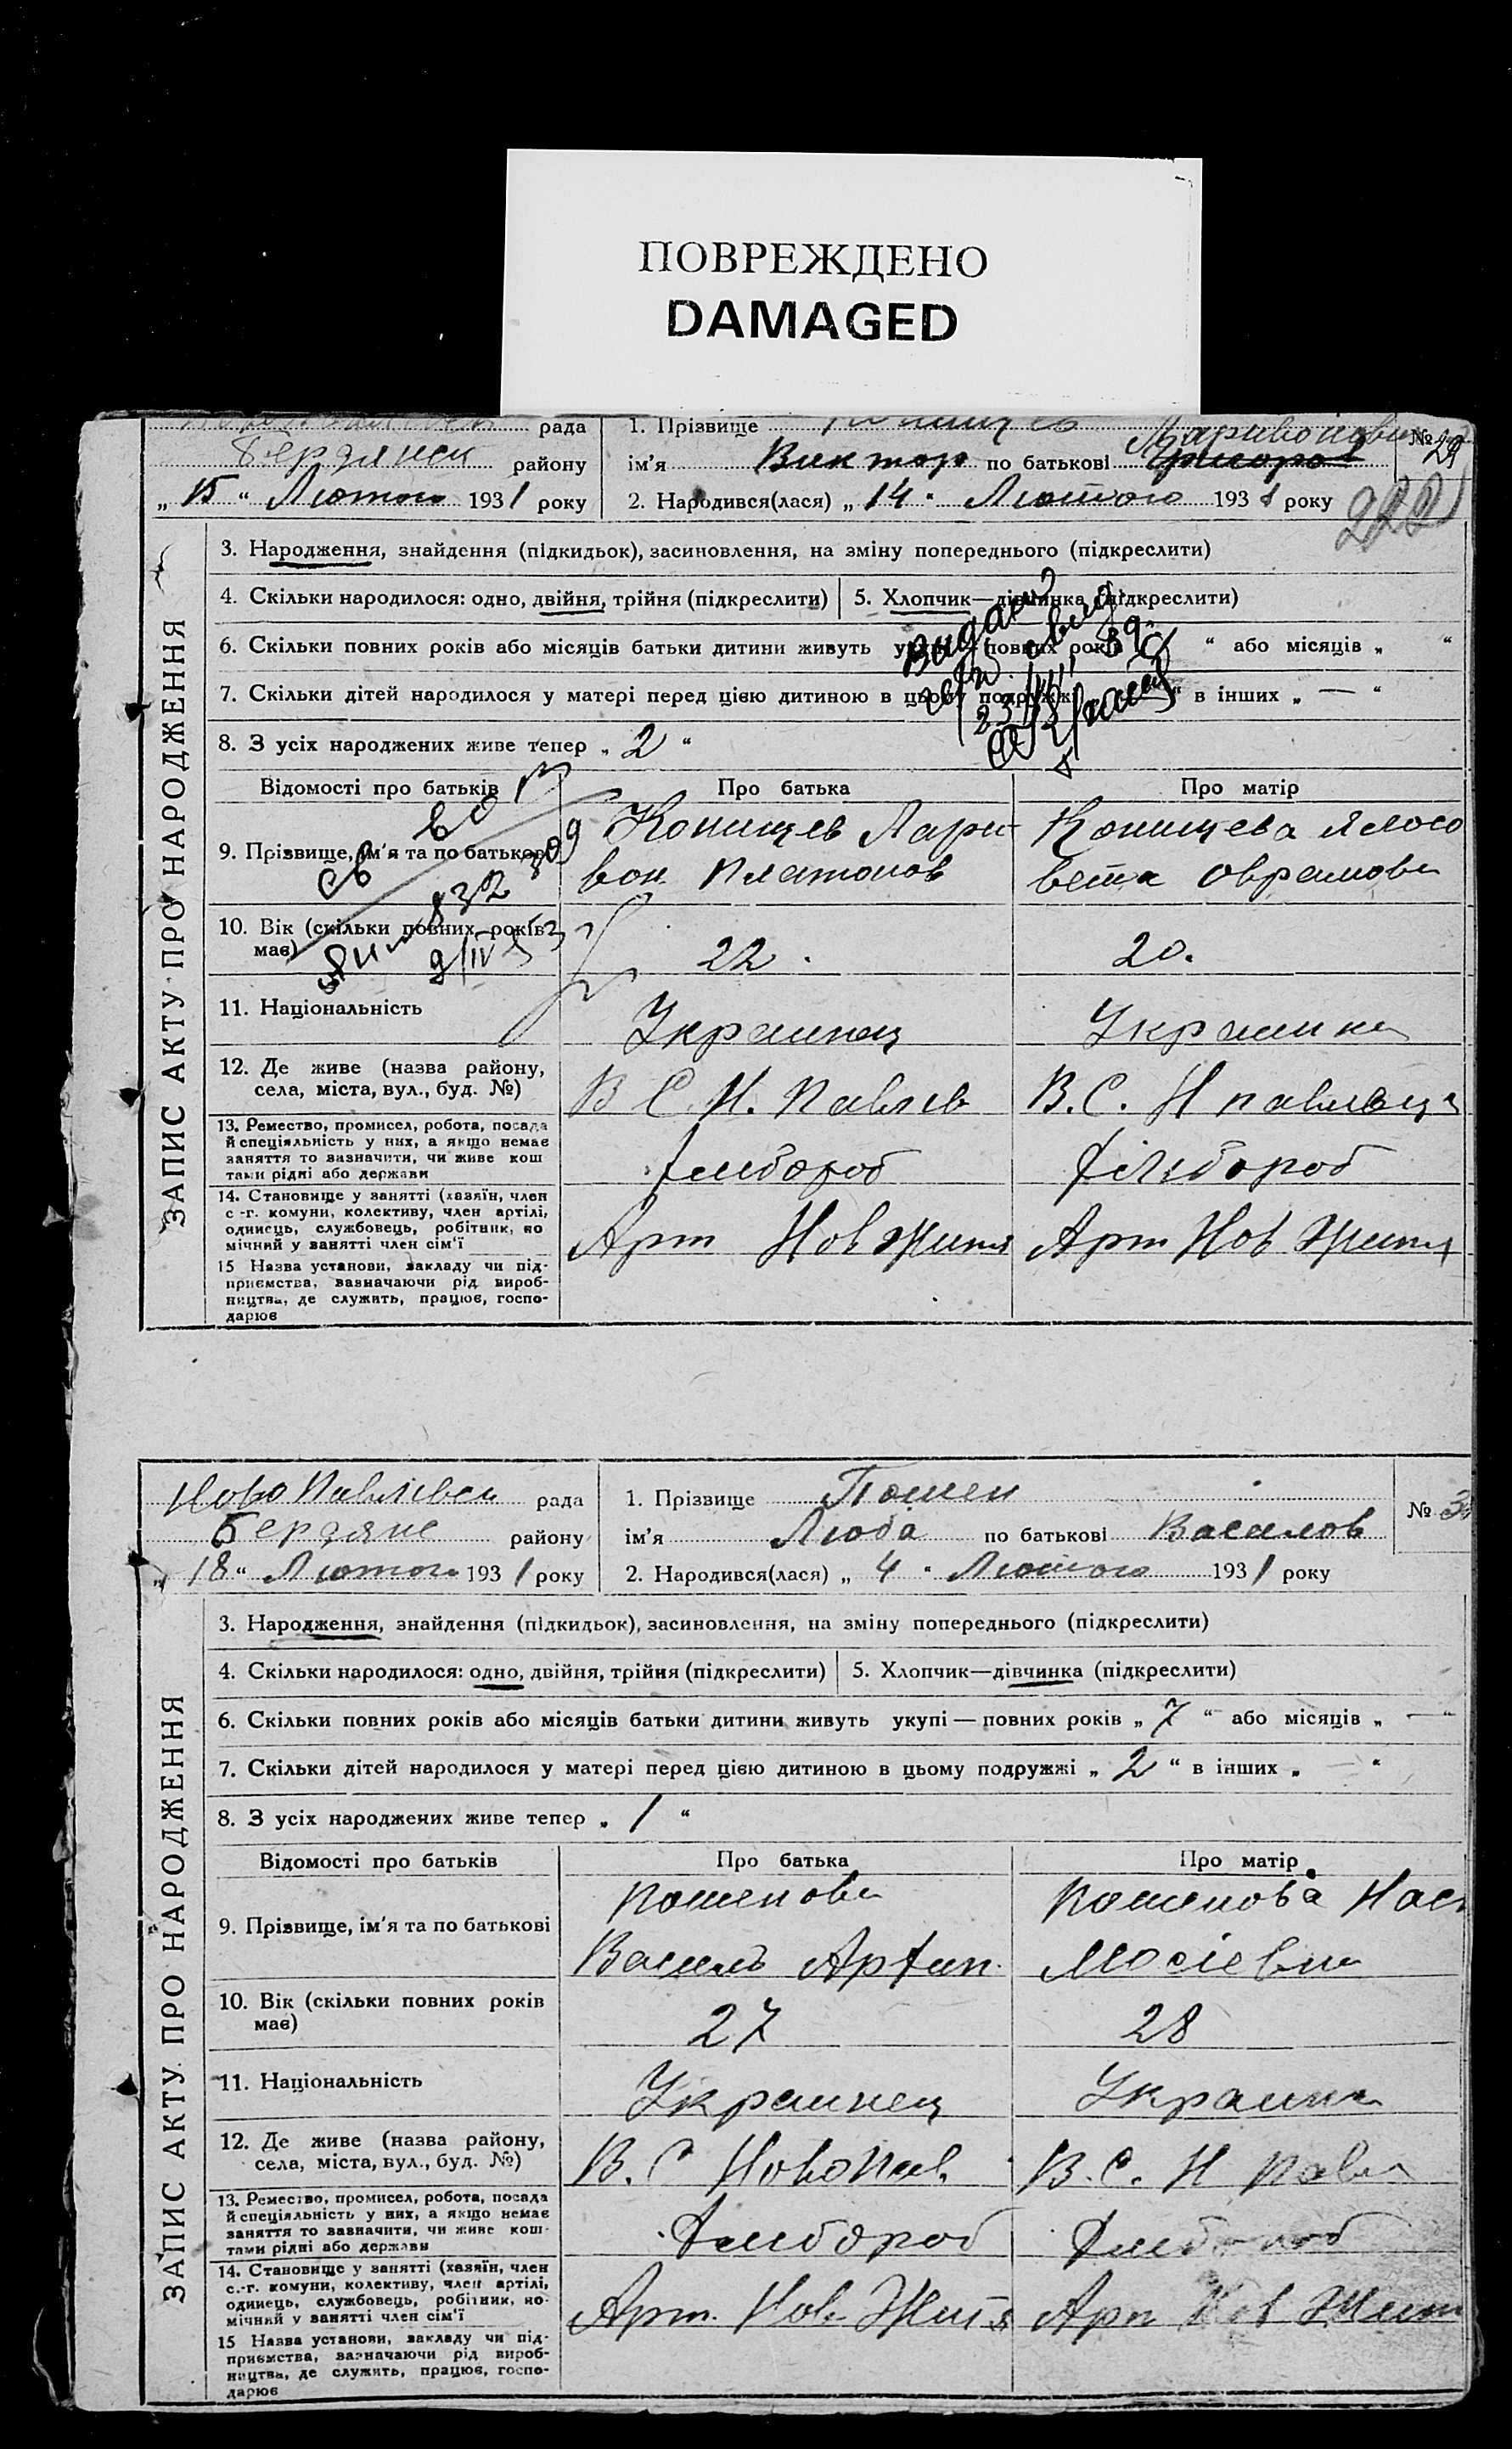 ПОВРЕЖДЕНО
DAMAGED
рада
1. Прізвище
№ 29
Бердянськ району
ім'я Виктор по батькові Ларивонови
Григоров
„ 15 “ Лютого 1931 року
2. Народився(лася) „ 14 “ Лютого 1931 року
222
ЗАПИС АКТУ ПРО НАРОДЖЕННЯ
3. Народження, знайдення (підкидьок), засиновлення, на зміну попереднього (підкреслити)
4. Скільки народилося: одно, двійня, трійня (підкреслити)
5. Хлопчик—дівчинка (підкреслити)
6. Скільки повних років або місяців батьки дитини живуть укупі — повних років “ або місяців „ “
7. Скільки дітей народилося у матері перед цією дитиною в цьому подружжі “ в інших „ — “
8. З усіх народжених живе тепер „ 2 “
Відомості про батьків
Про батька
Про матір
9. Прізвище, ім'я та по батькові
Конищев Лари
вон Платонов
Конищева Ялисо
вета Оврамовн
10. Вік (скільки повних років
має)
22
20.
11. Національність
Украинец
Украинка
12. Де живе (назва району,
села, міста, вул., буд. №)
В С. Н. Павлів
В. С. Н павлівци
13. Ремество, промисел, робота, посада
й спеціяльність у них, а якщо немає
заняття то зазначити, чи живе кош
тами рідні або держави
Хлибороб
Хлібороб
14. Становище у занятті (хазяїн, член
с -г. комуни, колективу, член артілі,
одинець, службовець, робітник, по
мічний у занятті член сім'ї
Арт Нов Життя
Арт Нов Життя
15 Назва установи, закладу чи під-
приємства, зазначаючи рід вироб-
ництва, де служить, працює, госпо-
дарює
Ново Павлівськ рада
1. Прізвище Пошен
№ 3
Бердянс району
ім'я Люба по батькові Василов
„ 18 “ Лютого 1931 року
2. Народився(лася) „ 4 “ Лютого 1931 року
ЗАПИС АКТУ ПРО НАРОДЖЕННЯ
3. Народження, знайдення (підкидьок), засиновлення, на зміну попереднього (підкреслити)
4. Скільки народилося: одно, двійня, трійня (підкреслити)
5. Хлопчик—дівчинка (підкреслити)
6. Скільки повних років або місяців батьки дитини живуть укупі — повних років „ 7 “ або місяців „ — “
7. Скільки дітей народилося у матері перед цією дитиною в цьому подружжі „ 2 “ в інших „ — “
8. З усіх народжених живе тепер „ 1 “
Відомості про батьків
Про батька
Про матір
9. Прізвище, ім'я та по батькові
Пошенова
Василь Архип.
Пошенова Наст
Мосієвна
10. Вік (скільки повних років
має)
27
28
11. Національність
Украинец
Украинка
12. Де живе (назва району,
села, міста, вул., буд. №)
В. С Новопав.
В. С. Н Павл
13. Ремество, промисел, робота, посада
й спеціяльність у них, а якщо немає
заняття то зазначити, чи живе кош-
тами рідні або держави
Хлибороб
Хлибороб
14. Становище у занятті (хазяїн, член
с.-г. комуни, колективу, член артілі,
одинець, службовець, робітник, по-
мічний у занятті член сім'ї
Арт. Нов. Життя
Арт Нов Житт
15 Назва установи, закладу чи під-
приємства, зазначаючи рід вироб-
ництва, де служить, працює, госпо-
дарює